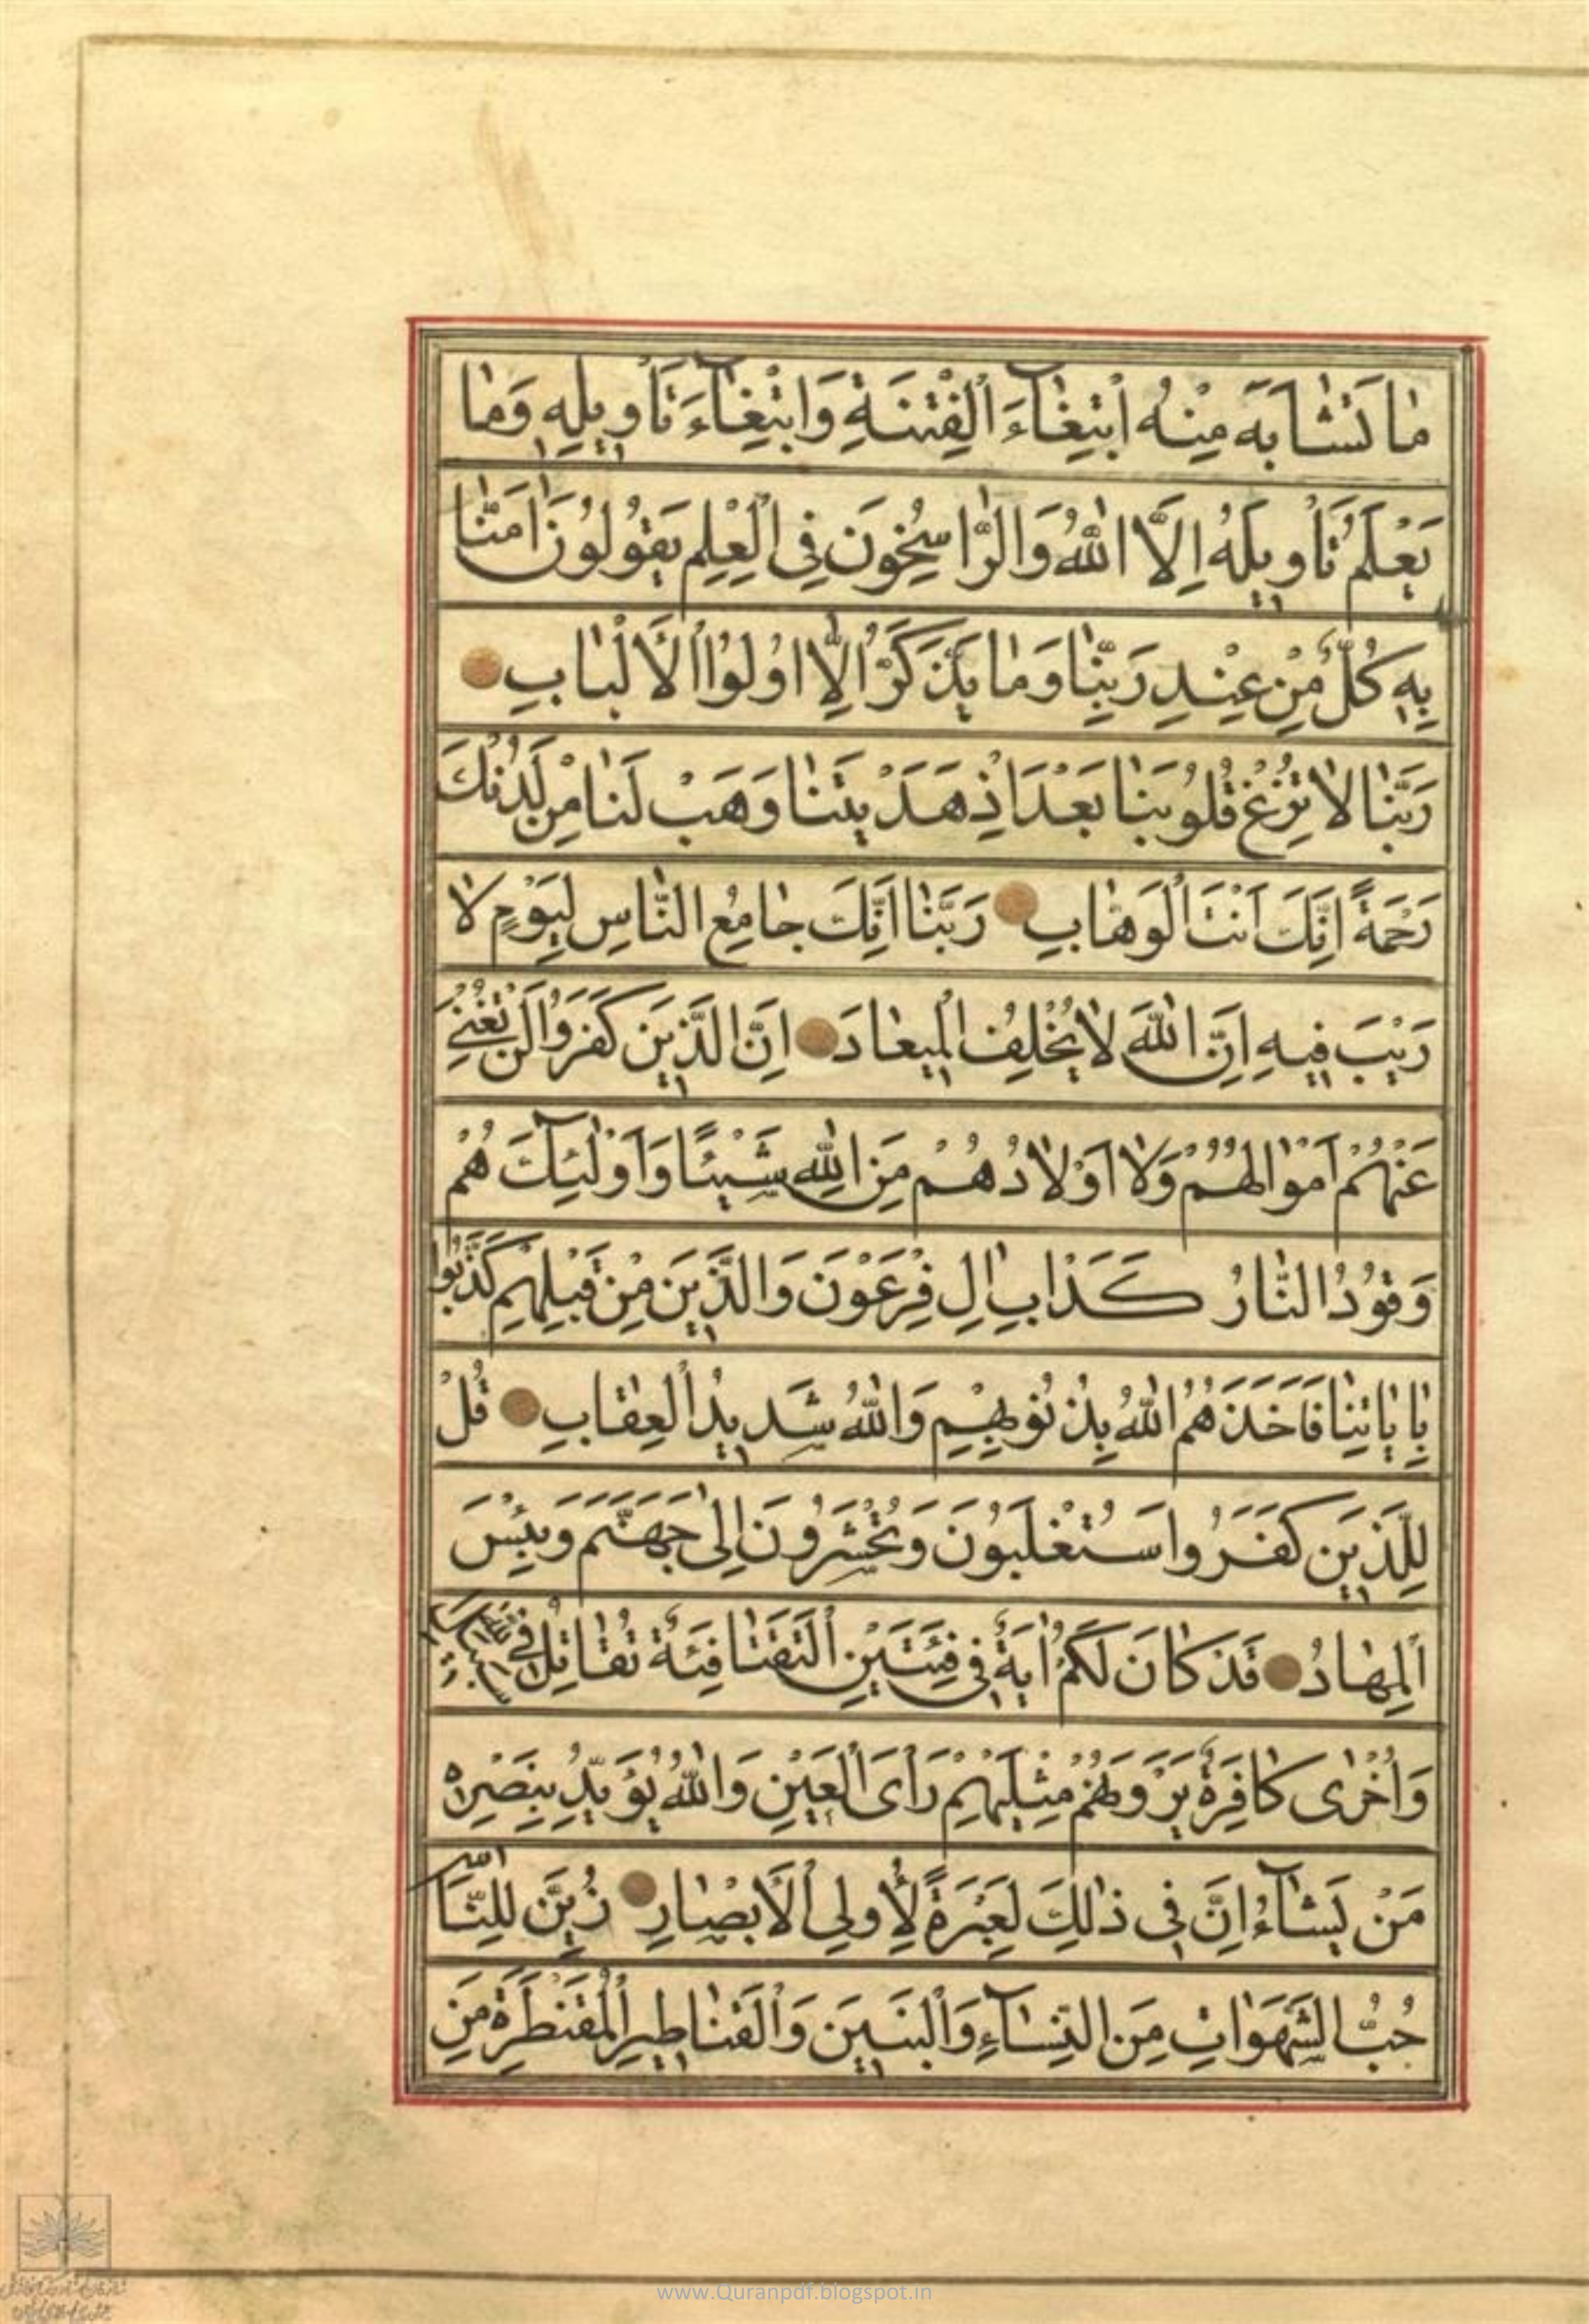 مٰا تَشٰابَهَ مِنْهُ ابْتِغٰآءَ الْفِتْنَةِ وَابْتِغٰآءَ تَأْوِيلِهِ وَمٰا
يَعْلَمُ تَأْوِيلَهُ اِلَّا اللّٰهُ وَالرّٰاسِخُونَ فِى الْعِلْمِ يَقُولُونَ اٰمَنّٰا
بِهِ كُلٌّ مِنْ عِنْدِ رَبِّنٰا وَمٰا يَذَّكَّرُ اِلّٰا اُولُوا الْأَلْبٰابِ
رَبَّنٰا لٰا تُزِغْ قُلُوبَنٰا بَعْدَ اِذْ هَدَيْتَنٰا وَهَبْ لَنٰا مِنْ لَدُنْكَ
رَحْمَةً اِنَّكَ اَنْتَ الْوَهّٰابِ رَبَّنٰا اِنَّكَ جٰامِعُ النّٰاسِ لِيَوْمٍ لٰا
رَيْبَ فِيهِ اِنَّ اللّٰهَ لٰا يُخْلِفُ الْمِيعٰادَ اِنَّ الَّذِينَ كَفَرُوا لَنْ تُغْنِيَ
عَنْهُمْ اَمْوٰالُهُمْ وَلٰا اَوْلٰادُهُمْ مِنَ اللّٰهِ شَيْئًا وَاُولٰئِكَ هُمْ
وَقُودُ النّٰارُ كَدَابِ اٰلِ فِرْعَوْنَ وَالَّذِينَ مِنْ قَبْلِهِمْ كَذَّبُوا
بِاٰيٰاتِنٰا فَاَخَذَهُمُ اللّٰهُ بِذُنُوبِهِمْ وَاللّٰهُ شَدِيدُ الْعِقٰابِ قُلْ
لِلَّذِينَ كَفَرُوا سَتُغْلَبُونَ وَتُحْشَرُونَ اِلٰى جَهَنَّمَ وَبِئْسَ
الْمِهٰادُ قَدْ كٰانَ لَكُمْ اٰيَةٌ فِى فِئَتَيْنِ الْتَقَتٰا فِئَةٌ تُقٰاتِلُ فِى سَبِيلِ اللّٰهِ
وَاُخْرٰى كٰافِرَةٌ يَرَوْنَهُمْ مِثْلَيْهِمْ رَأْىَ الْعَيْنِ وَاللّٰهُ يُؤَيِّدُ بِنَصْرِهِ
مَنْ يَشٰآءُ اِنَّ فِى ذٰلِكَ لَعِبْرَةً لِأُولِى الْأَبْصٰارِ زُيِّنَ لِلنّٰاسِ
حُبُّ الشَّهَوٰاتِ مِنَ النِّسٰآءِ وَالْبَنِينَ وَالْقَنٰاطِيرِ الْمُقَنْطَرَةِ مِنَ
www.Quranpdf.blogspot.in